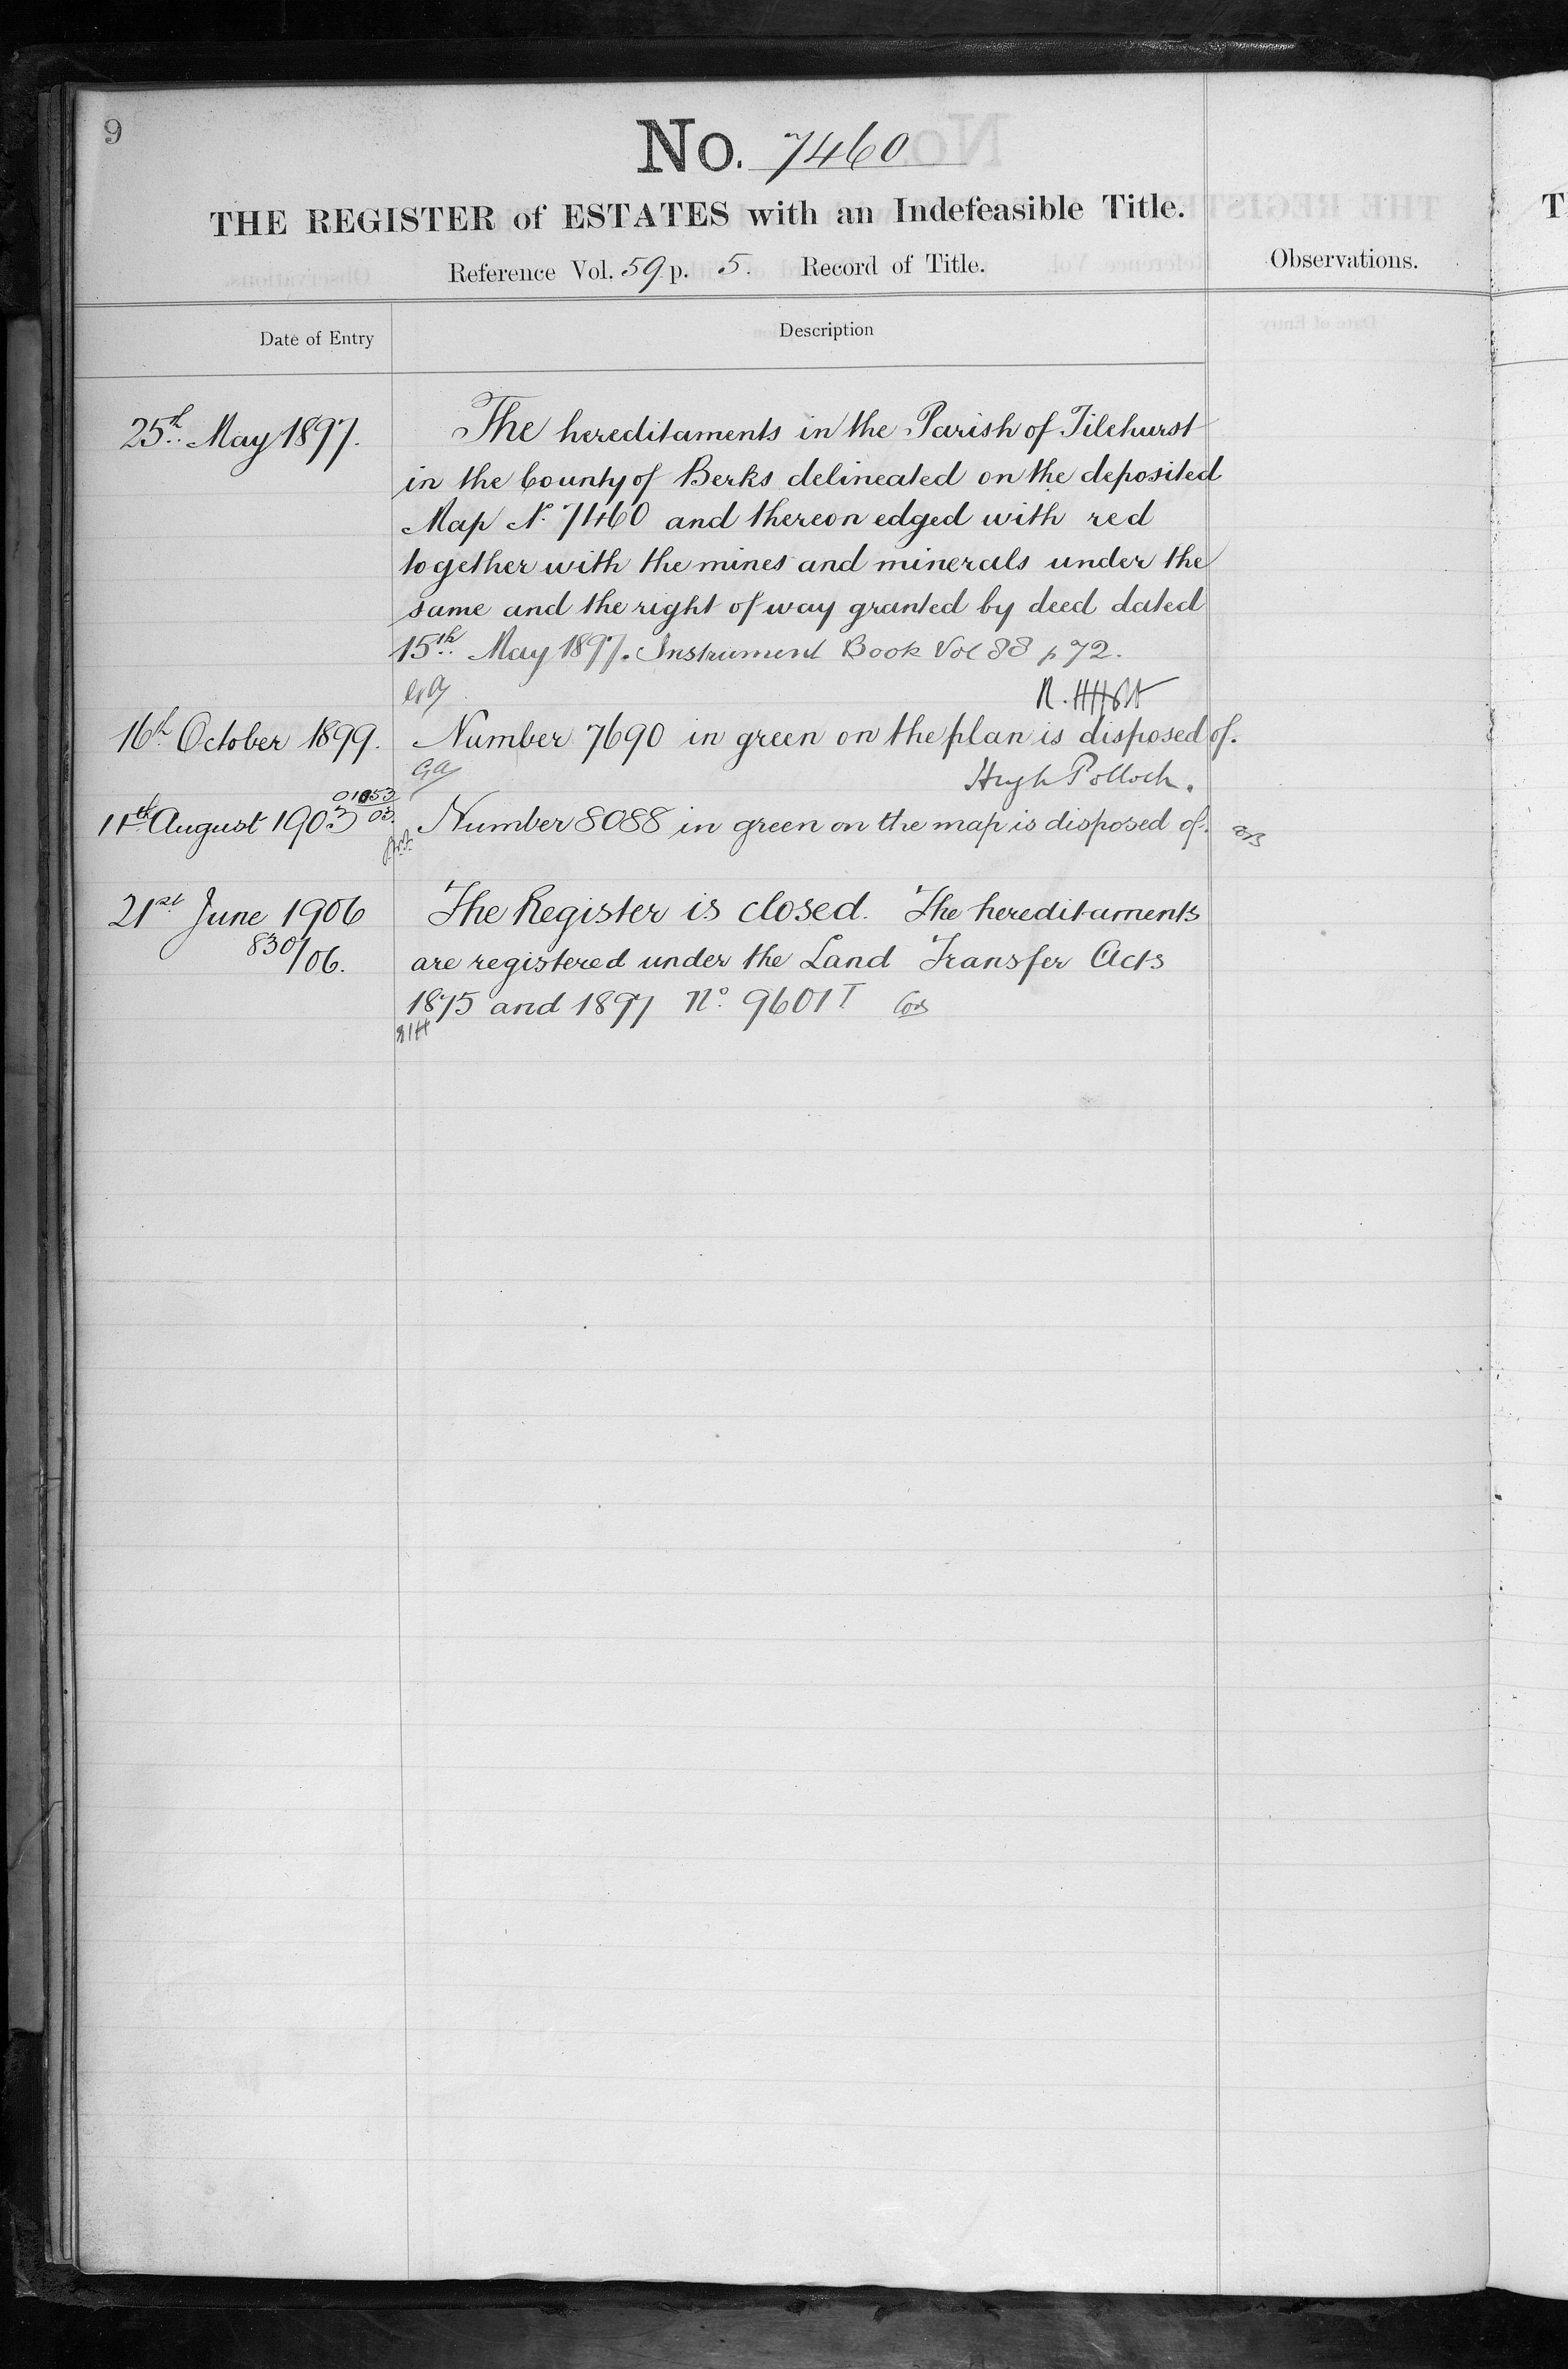 9
No. 7460
THE REGISTER of ESTATES with an Indefeasible Title.
Reference Vol. 59 p. 5. Record of Title.
Observations.
Date of Entry
Description
25th May 1897.
The hereditaments in the Parish of Tilehurst
in the County of Berks delineated on the deposited
Map No. 7460 and thereon edged with red
together with the mines and minerals under the
same and the right of way granted by deed dated
15th May 1897. Instrument Book Vol 88 p 72.
16th October 1899. Number 7690 in green on the plan is disposed of.
GA
Hugh Pollock.
11th August 1903 03. Number 8088 in green on the map is disposed of.
21st June 1906 The Register is closed. The hereditaments
830/06. are registered under the Land Transfer Acts
1875 and 1897 No. 9601T